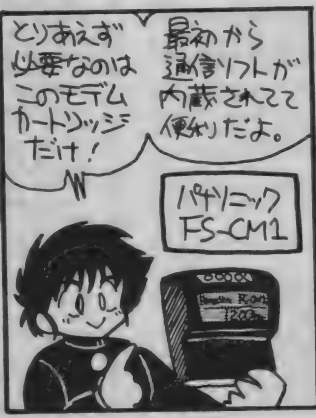 最初から
通信ソフトが
内蔵されてて
便利だよ。
とりあえず
必要なのは
このモデム
カートリッジ
だけ！
パナソニック
FS-CM1
1200